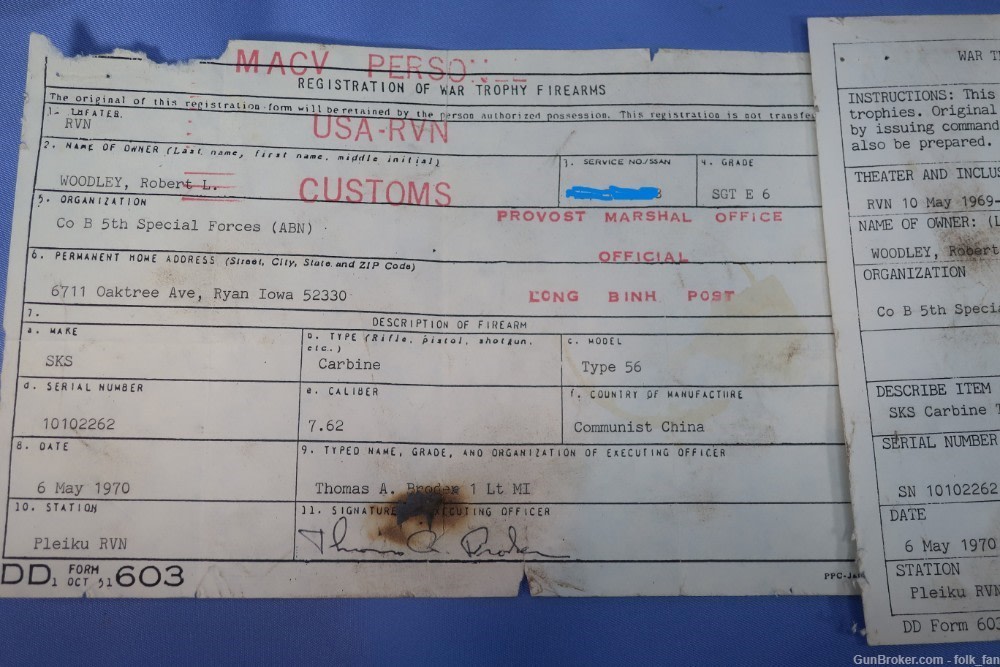 MACV PERSO
REGISTRATION OF WAR TROPHY FIREARMS
The original of this registration form will be retained by the person authorized possession. This registration is not transfe
1.
RVN
USA-RVN
2. NAME OF OWNER (Last name, first name, middle initial)
WOODLEY, Robert L.
3. SERVICE NO/SSAN
4. GRADE
SGT E 6
CUSTOMS
5. ORGANIZATION
Co B 5th Special Forces (ABN)
PROVOST MARSHAL OFFICE
OFFICIAL
LONG BINH POST
6. PERMANENT HOME ADDRESS (Street, City, State and ZIP Code)
6711 Oaktree Ave, Ryan Iowa 52330
7.
DESCRIPTION OF FIREARM
a. MAKE
SKS
b. TYPE (Rifle, pistol, shotgun, etc.)
Carbine
c. MODEL
Type 56
d. SERIAL NUMBER
10102262
e. CALIBER
7.62
f. COUNTRY OF MANUFACTURE
Communist China
8. DATE
6 May 1970
9. TYPED NAME, GRADE, AND ORGANIZATION OF EXECUTING OFFICER
Thomas A. Broder 1 Lt MI
10. STATION
Pleiku RVN
11. SIGNATURE CUTING OFFICER
DD FORM 603
1 OCT 51
WAR T
INSTRUCTIONS: This
trophies. Original
by issuing command
also be prepared.
THEATER AND INCLUS
RVN 10 May 1969-
NAME OF OWNER: (L
WOODLEY, Robert
ORGANIZATION
Co B 5th Specia
DESCRIBE ITEM
SKS Carbine T
SERIAL NUMBER
SN 10102262
DATE
6 May 1970
STATION
Pleiku RVN
DD Form 603
GunBroker.com - folk_fan